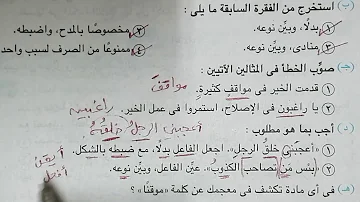 (ب) استخرج من الفقرة السابقة ما يلى :
١ بدلًا، وبيِّن نوعه. ٢ مخصوصًا بالمدح، واضبطه.
٣ منادى، وبيِّن نوعه. ٤ ممنوعًا من الصرف لسبب واحد
(جـ) صوِّب الخطأ فى المثالين الآتيين : مواقفَ
١ قدمت الخير فى مواقفٍ كثيرةٍ. راغبين
٢ يا راغبون فى الإصلاح، استمروا فى عمل الخير.
أعجبنى الرجلُ خلقُهُ
(د) أجب بما هو مطلوب :
١ «أعجبَنى خلقُ الرجلِ». اجعل الفاعل بدلًا، مع ضبطه بالشكل.
٢ «بِئسَ مَن تصاحب الكذوبُ». عيِّن الفاعل، وبيِّن نوعه.
(هـ) فى أى مادة تكشف فى معجمك عن كلمة «موقنًا» ؟